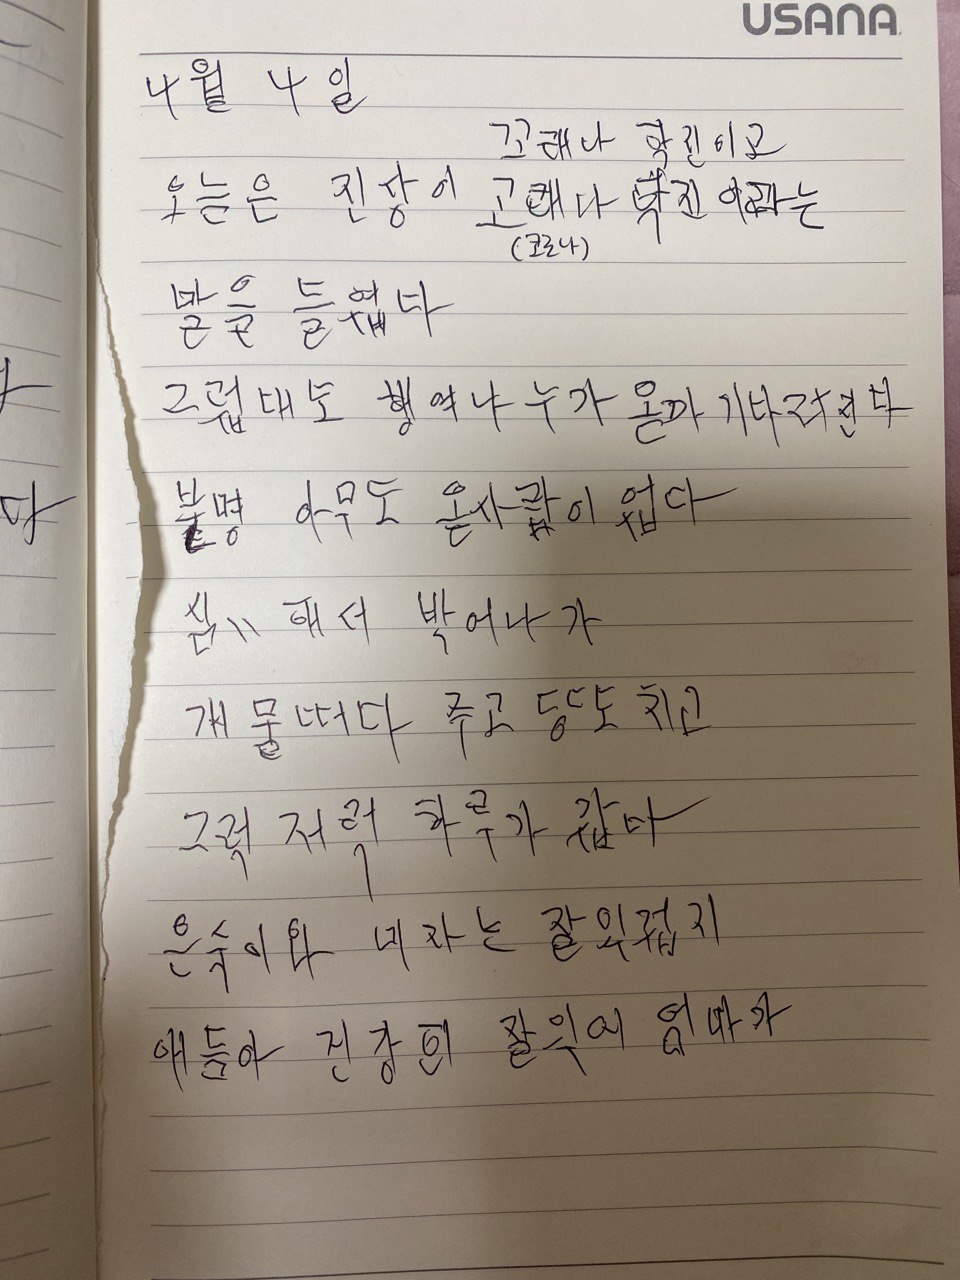 USANA
4월 4일
꼬래나 확진이고
오늘은 진장이 고래다 확진 이라는
(코로나)
말을 들웝다
그럽대도 행여나 누가 올까 기다려진다
불명 아무도 온사람이 업다
심\\ 해서 박어나가
개 물떠다 주고 등도 치고
그럭 저럭 하루가 갑다
은수이와 미자는 잘잇겁지
애들아 건강희 잘잇어 엄마가
다